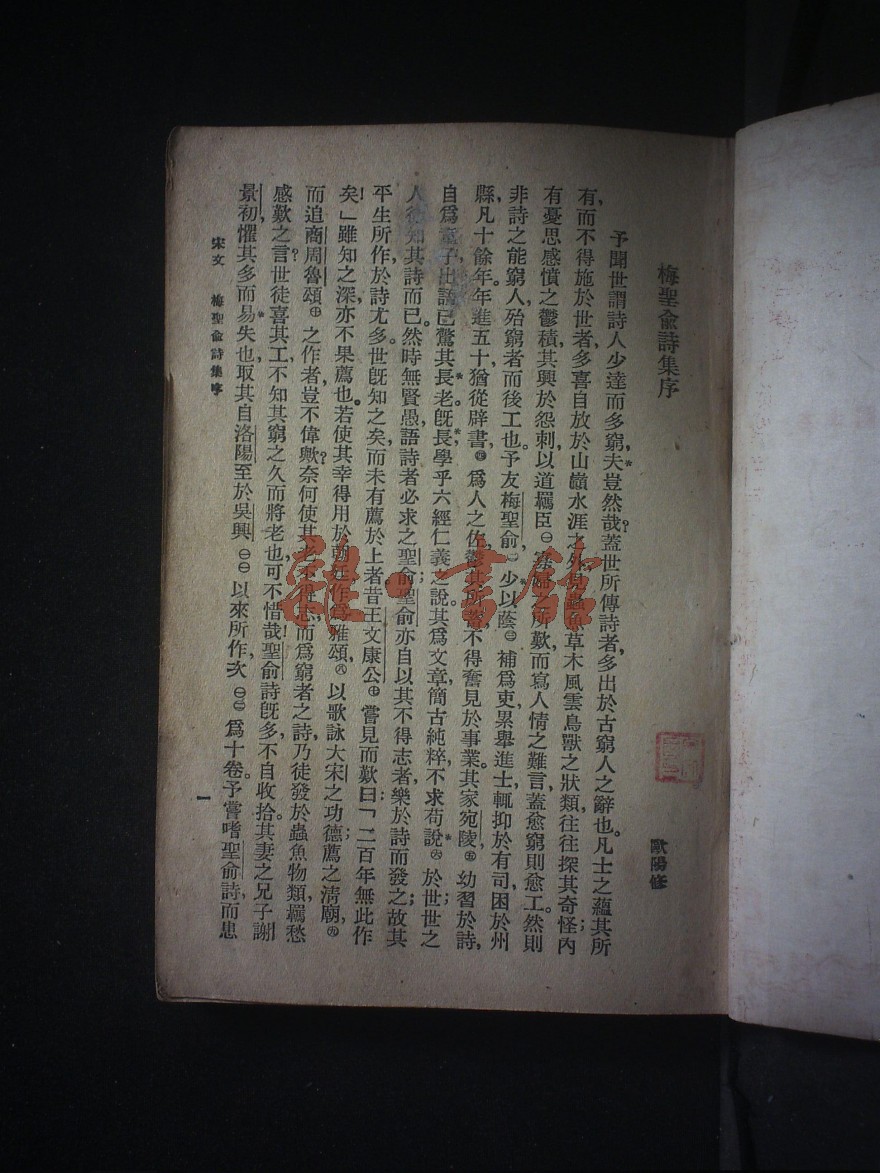 梅聖俞詩集序
歐陽修
予聞世謂詩人少達而多窮,*夫豈然哉?蓋世所傳詩者,多出於古窮人之辭也。凡士之蘊其所
有,而不得施於世者,多喜自放於山巔水涯之外,見蟲魚草木風雲鳥獸之狀類,往往探其奇怪;內
有憂思感憤之鬱積,其興於怨刺,以道羈臣㊀寡婦之所歎,而寫人情之難言,蓋愈窮則愈工。然則
非詩之能窮人,殆窮者而後工也。予友梅聖俞,㊁少以蔭㊂補爲吏,累舉進士,輒抑於有司,困於州
縣,凡十餘年。年進五十,猶從辟書,㊃爲人之佐,鬱其所蓄,不得奮見於事業。其家宛陵,㊄幼習於詩,
自爲童子,出語已驚其長*老。旣長,*學乎六經仁義之說。其爲文章,簡古純粹,不求苟說*㊅於世;世之
人徒知其詩而已。然時無賢愚,語詩者必求之聖俞;聖俞亦自以其不得志者,樂於詩而發之;故其
平生所作,於詩尤多。世旣知之矣,而未有薦於上者。昔王文康公㊆嘗見而歎曰:「二百年無此作
矣!」雖知之深,亦不果薦也。若使其幸得用於朝廷,作爲雅頌,㊇以歌詠大宋之功德,薦之清廟,㊈
而追商周魯頌㊉之作者,豈不偉歟?奈何使其老不得志,而爲窮者之詩,乃徒發於蟲魚物類,羈愁
感歎之言?世徒喜其工,不知其窮之久而將老也,可不惜哉!聖俞詩旣多,不自收拾。其妻之兄子謝
景初,懼其多而易*失也,取其自洛陽至於吳興㊀㊀以來所作,次㊀㊁爲十卷。予嘗嗜聖俞詩,而患
宋文 梅聖俞詩集序
一
雜·書館